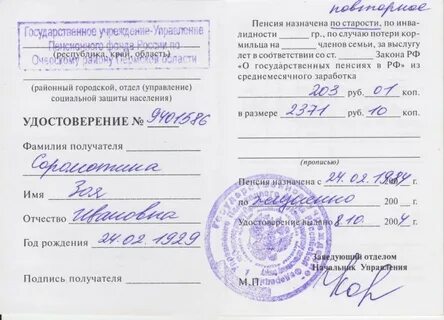 Государственное учреждение-Управление
Пенсионного фонда России по
Очерскому району Пермской области
(республика, край, область)
(районный городской, отдел (управление)
социальной защиты населения)
УДОСТОВЕРЕНИЕ № 9401586
Фамилия получателя
Соромотина
Имя Зоя
Отчество Ивановна
Год рождения 24.02.1929
Подпись получателя
повторное
Пенсия назначена по старости, по инва-
лидности гр., по случаю потери кор-
мильца на членов семьи, за выслугу
лет в соответствии со ст. Закона РФ
"О государственных пенсиях в РФ" из
среднемесячного заработка
203 руб. 01 коп.
в размере 2371 руб. 10 коп.
(прописью)
Пенсия назначена с 24.02.1984 г.
по 200 г.
Удостоверение выдано 8.10 2004 г.
Заведующий отделом
Начальник Управления
М.П.